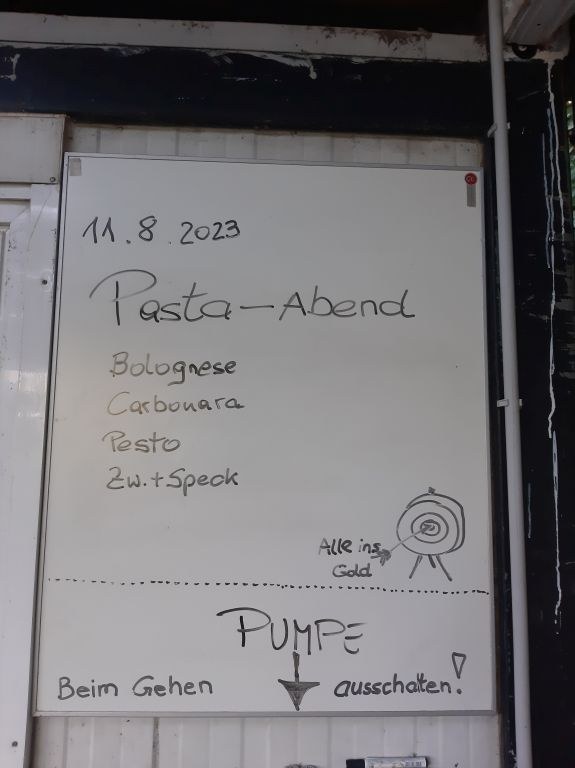 11.8.2023
Pasta-Abend
Bolognese
Carbonara
Pesto
Zw.+Speck
Alle ins
Gold
PUMPE
Beim Gehen ausschalten!